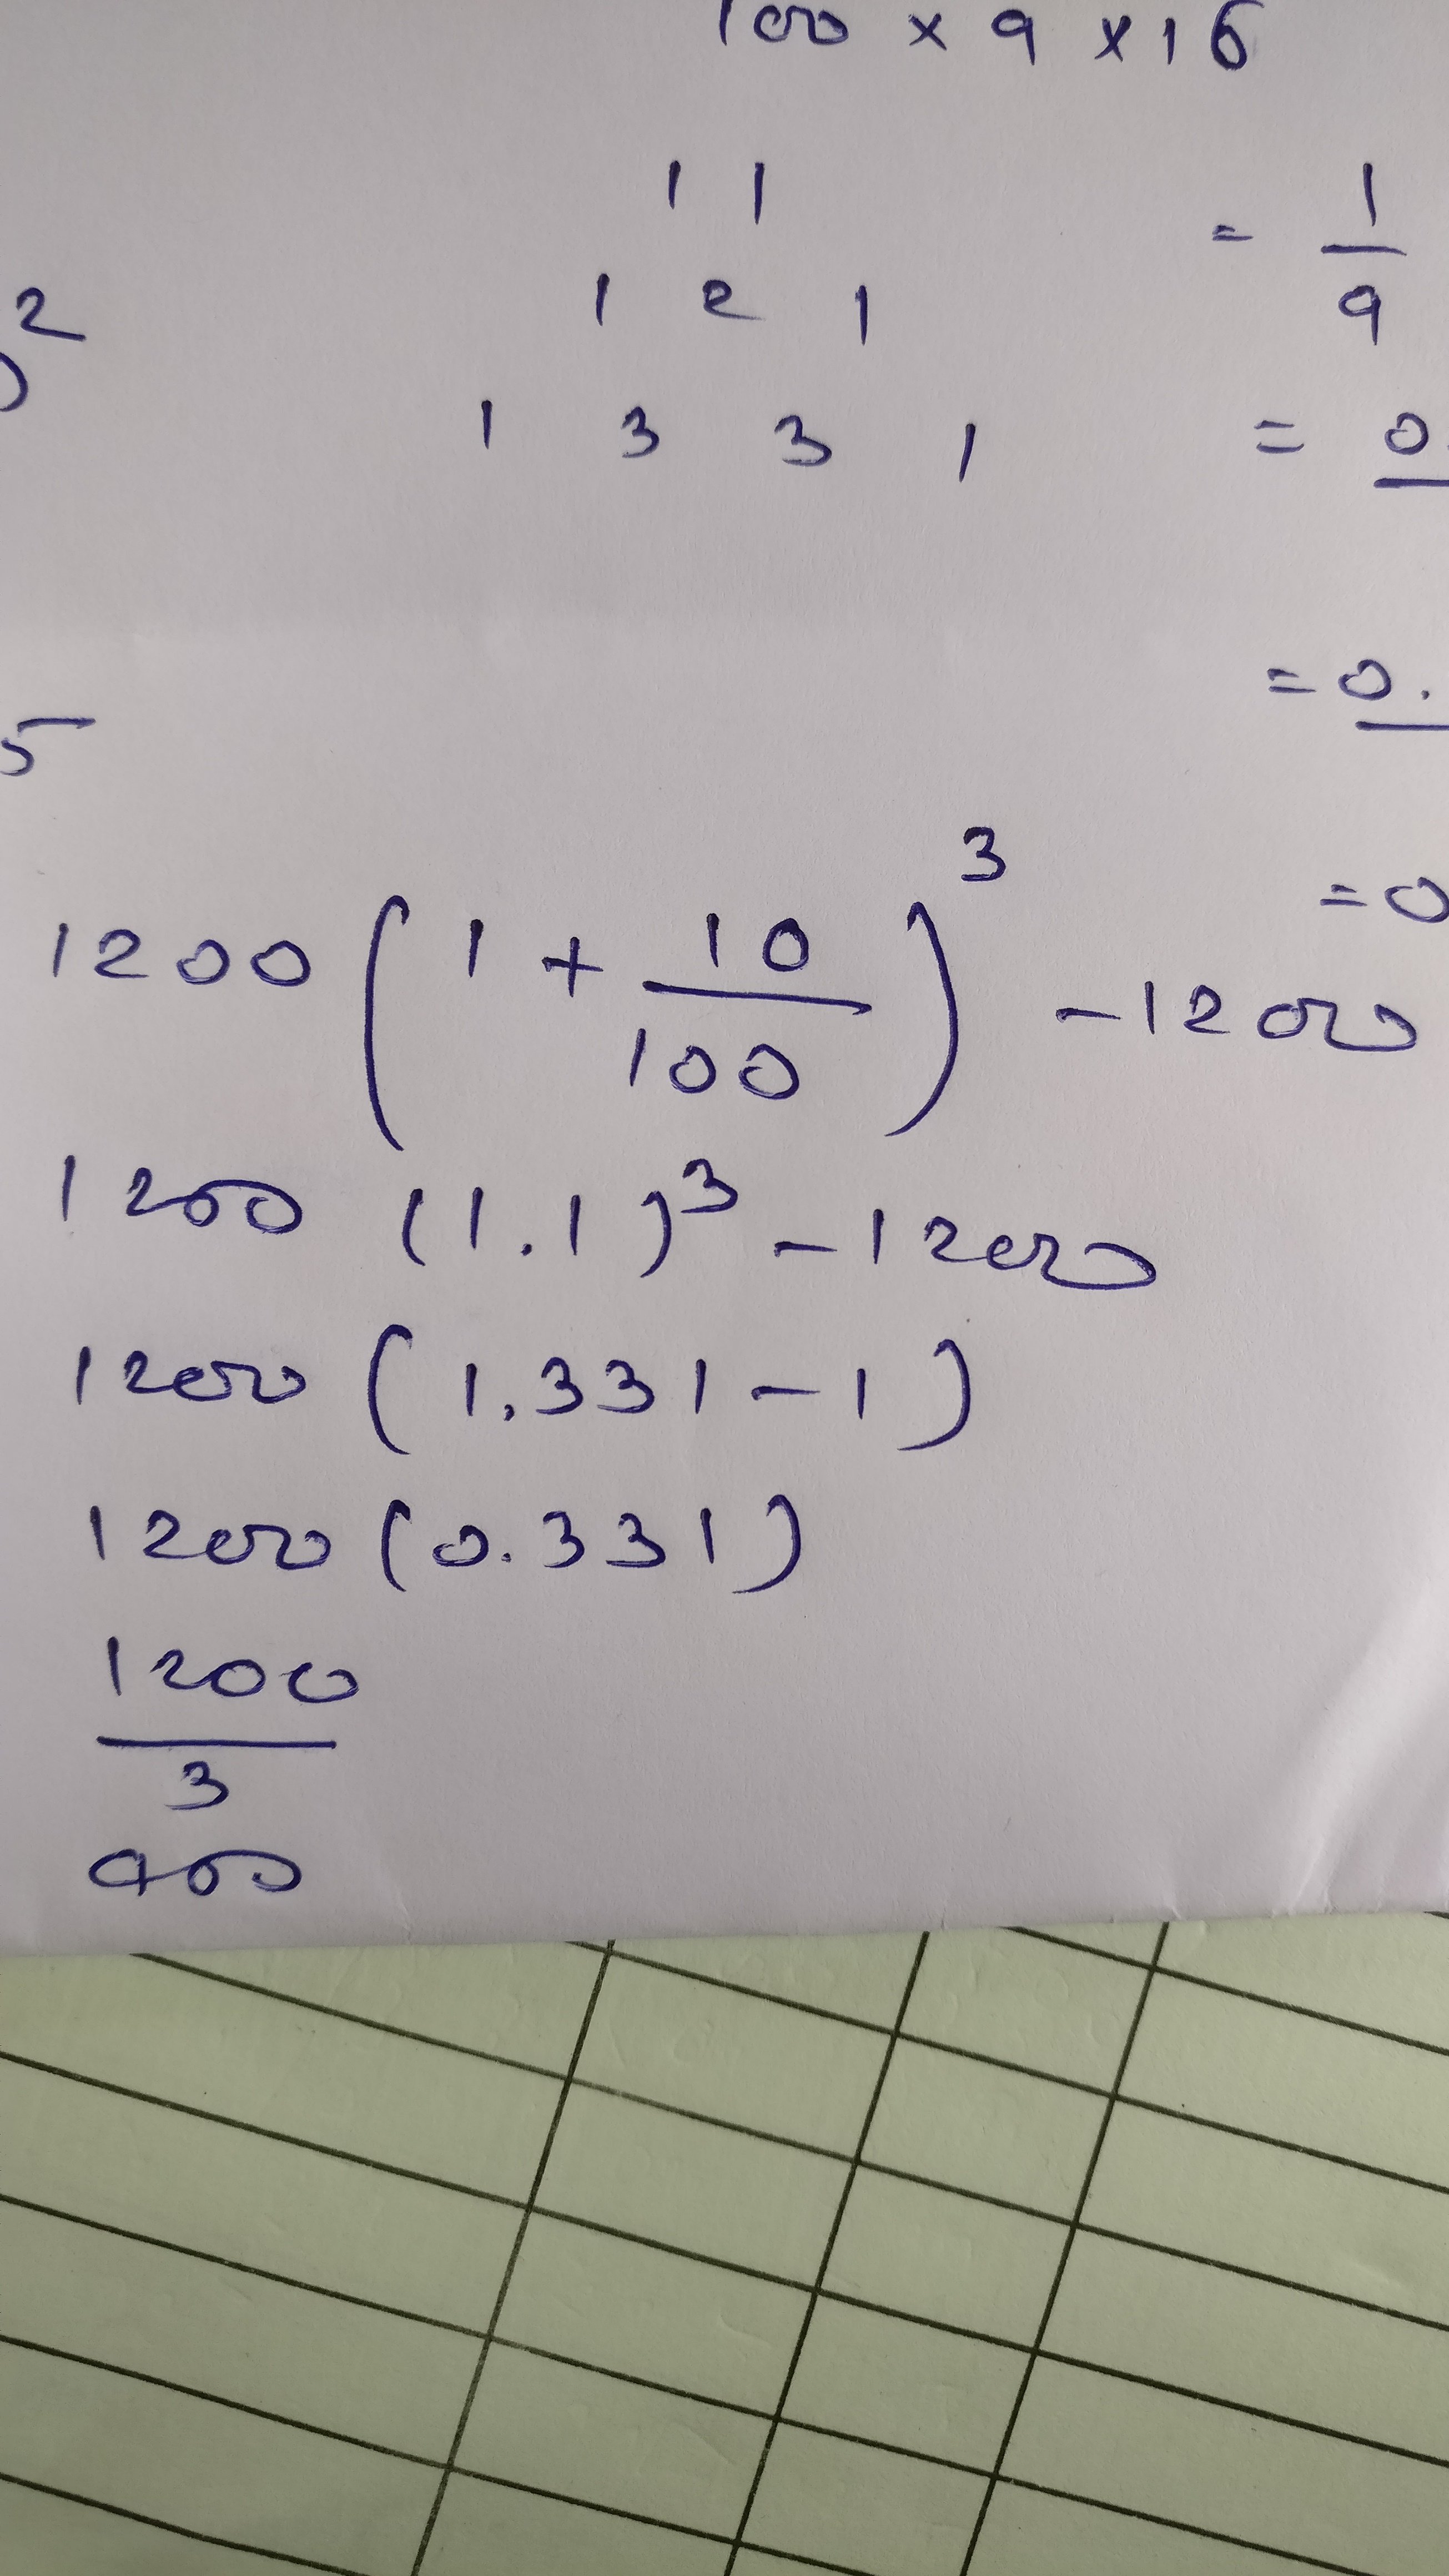 100 × 9 × 16
1 1
1 2 1
1 3 3 1
= 1/9
= 0.
= 0.
= 0
2
)
5
1200 (1 + 10/100)^3 - 1200
1200 (1.1)^3 - 1200
1200 (1.331 - 1)
1200 (0.331)
1200/3
400